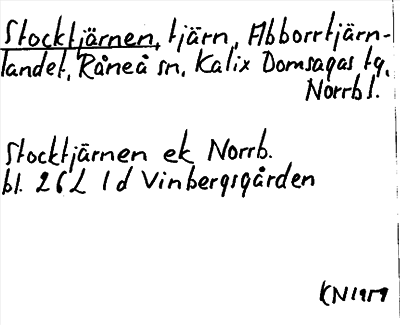 Stocktjärnen, tjärn, Abborrtjärn-
landet, Råneå sn, Kalix Domsagas tg,
Norrb l.
Stocktjärnen ek Norrb.
bl. 26L 1d Vinbergsgården
KN1959